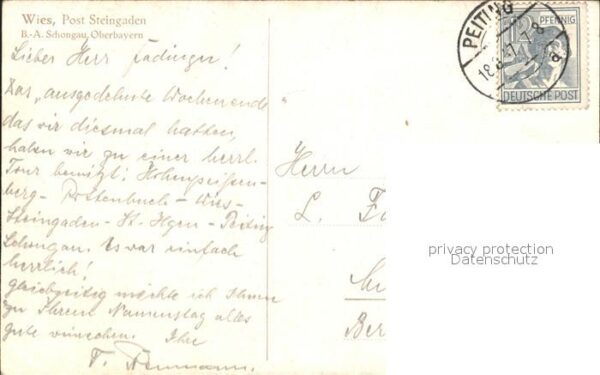 Wies, Post Steingaden
B.-A. Schongau, Oberbayern
Lieber Herr Fadinger!
Das „ausgedehnte Wochenende
das wir diesmal hatten,
haben wir zu einer herrl.
Tour benützt: Hohenpeißen-
berg - Rottenbuch - Wies -
Steingaden - St. Ilgen - Peiting
Schongau. Es war einfach
herrlich!
Gleichzeitig möchte ich Ihnen
zu Ihrem Namenstag alles
gute wünschen. Ihr
T.
Herrn
L. Fa
Ber
PEITING
18.8.47.7-8
a
12 PFENNIG
DEUTSCHE POST
privacy protection
Datenschutz